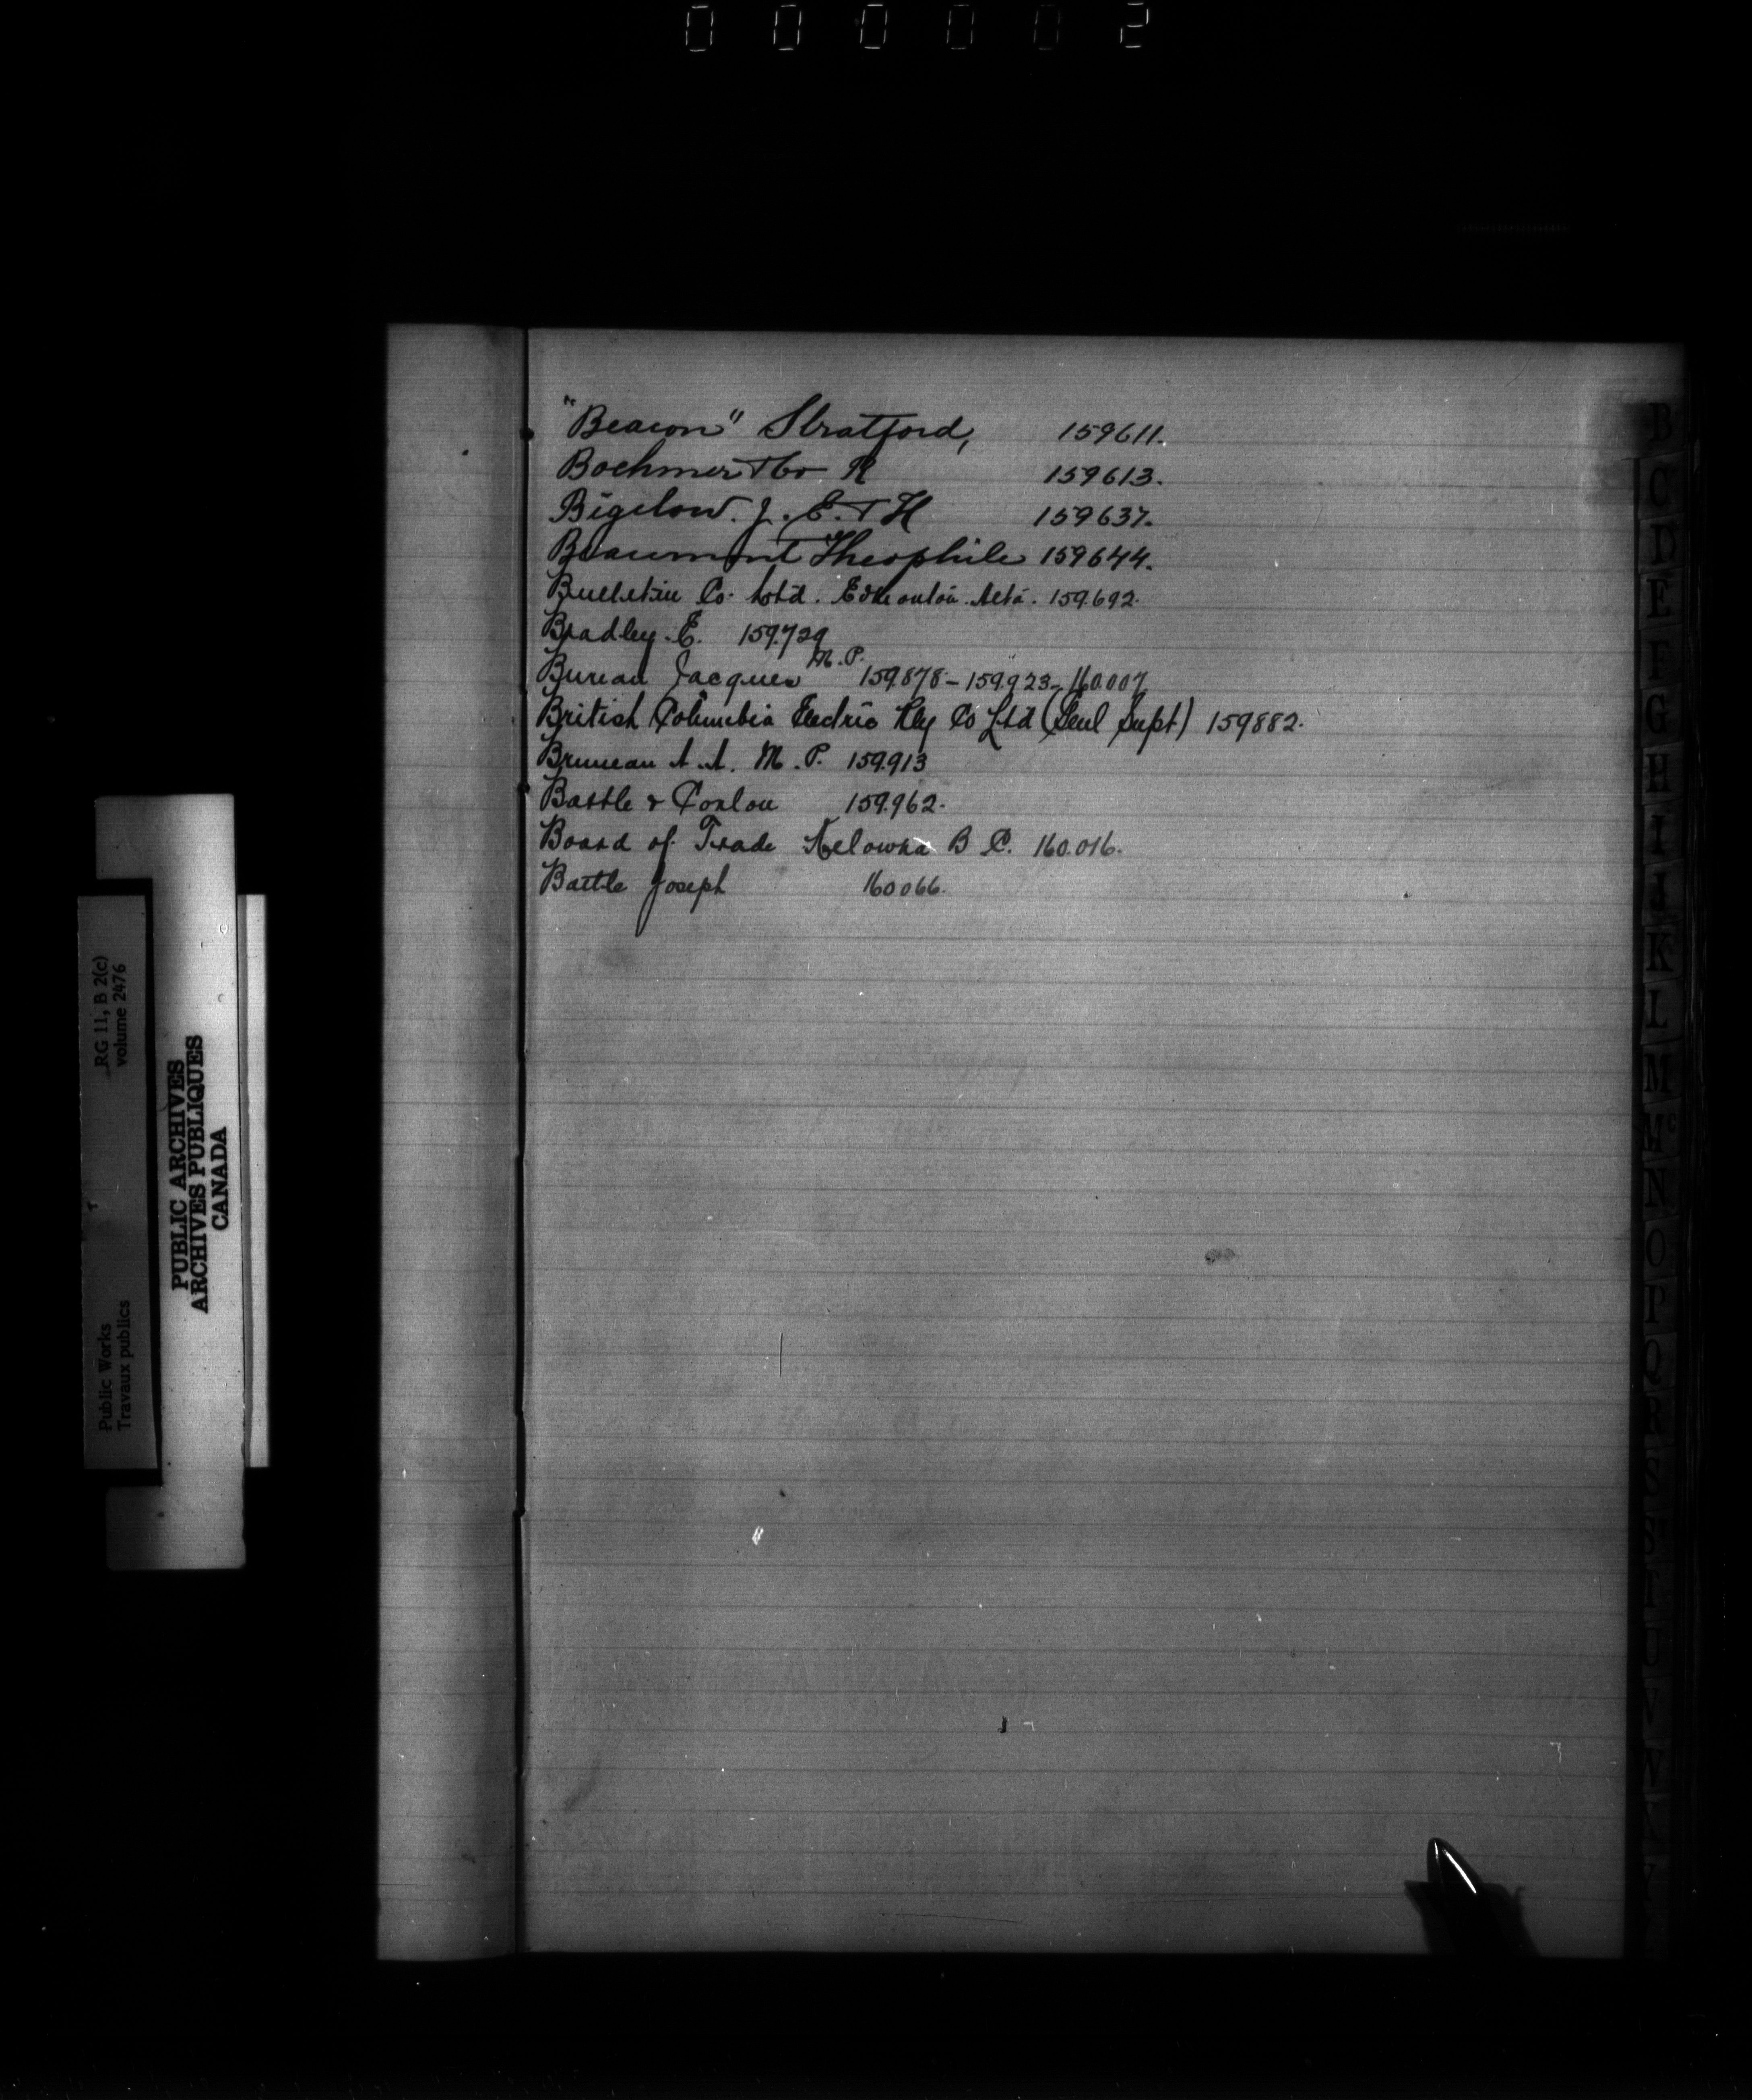 000002
"Beacon" Stratford, 159611.
Boehmer & Co. R 159613.
Bigelow. J. E. & H 159637.
Beaumont Theophile 159644.
Bulletin Co. Ltd. Edmonton Alta. 159.692.
Bradley. E. 159.729
Bureau Jacques M.P. 159.878 - 159.923 - 160.007
British Columbia Electric Rly Co Ltd (Genl Supt) 159882.
Bruneau A. A. M.P. 159.913
Battle & Conlon 159.962.
Board of Trade Kelowna B C. 160.016.
Battle Joseph 160066.
B
C
D
E
F
G
H
I
J
K
L
M
Mc
N
O
P
Q
R
S
T
U
V
W
Y
RG 11, B 2(c)
volume 2476
Public Works
Travaux publics
PUBLIC ARCHIVES
ARCHIVES PUBLIQUES
CANADA